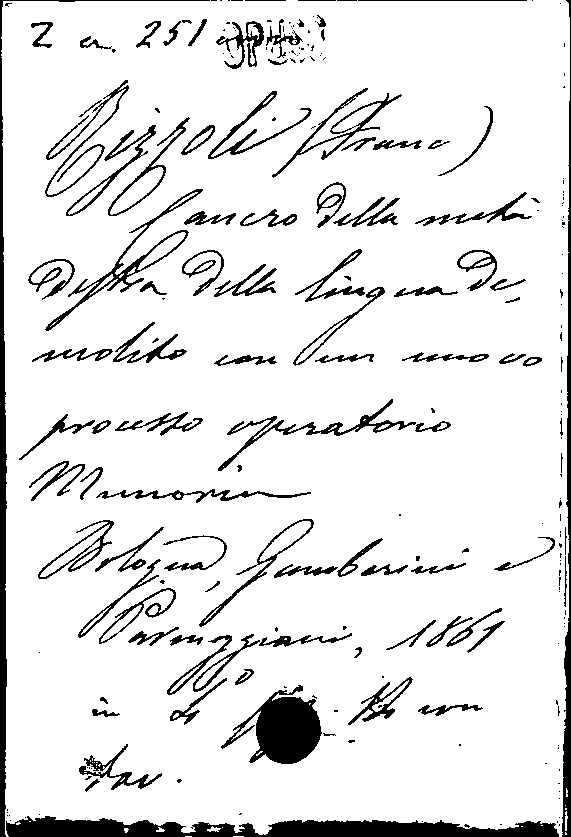 Z a. 251 OPUSC
Rizzoli (Franc)
Cancro della metà
Destra della lingua De,
molito con un nuovo
processo operatorio
Memoria
Bologna, Gamberini e
Parmeggiani, 1861
in 4° con
tav.